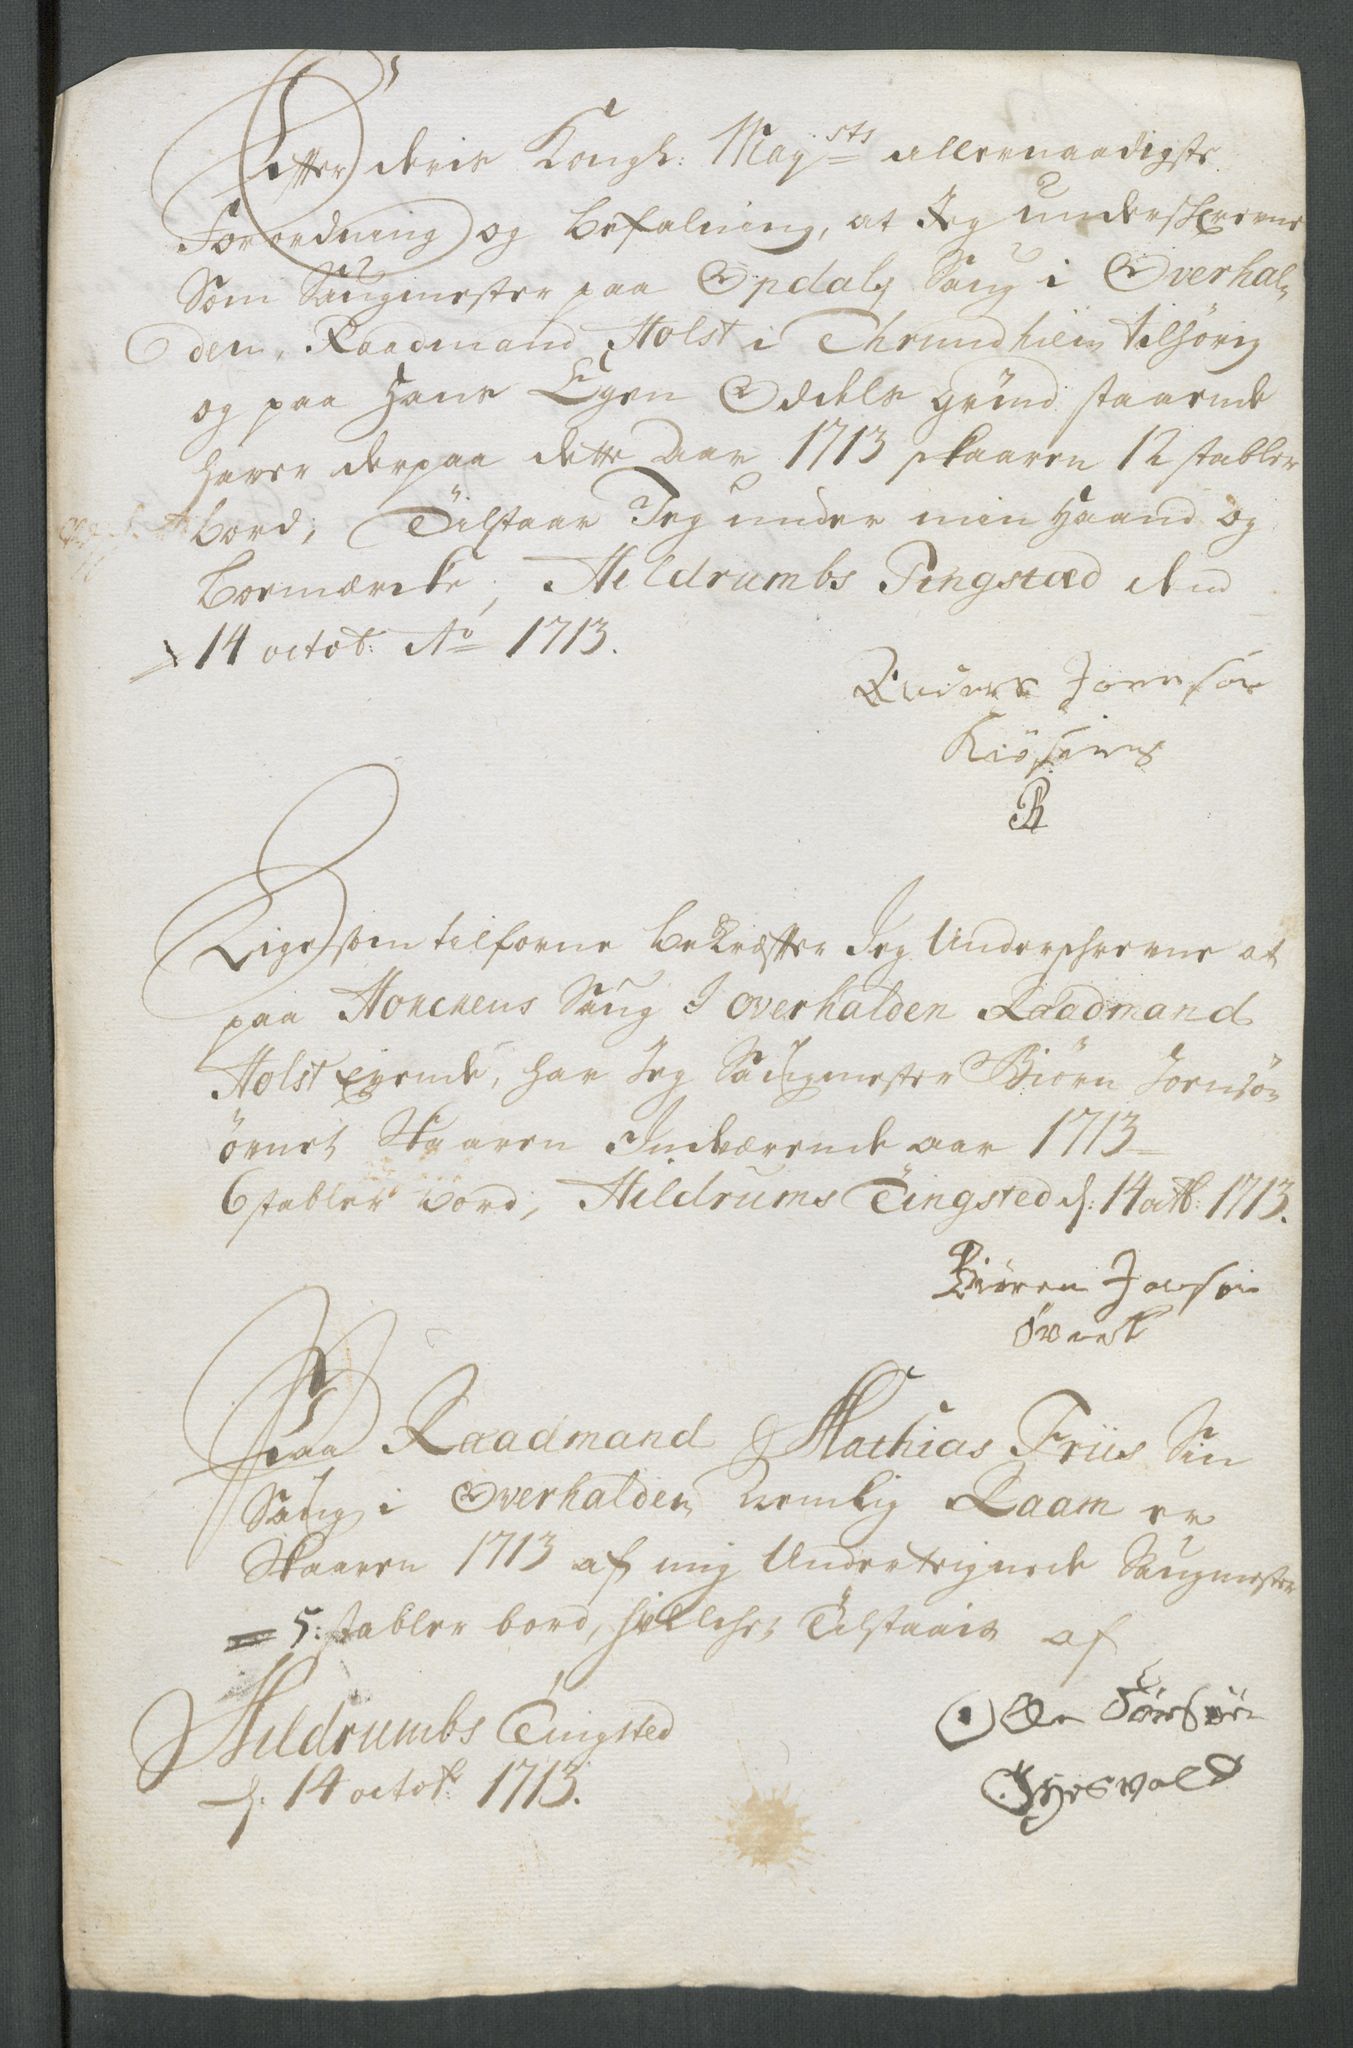 Efter deris Kongl: Maysts allernaadigste
Forordning og befalning, at Jeg underschrevne
Som Saugmester paa Opdals Saug i Overhal-
den, Raadmand Holst i Thrundhiem tilhörig
og paa Hans Egen Odels grund staaende
haver derpaa dette Aar 1713 skaaren 12 stabler
bord, Tilstaar Jeg under min Haand og
boemærcke, Hildrumbs Tingstæd den
14 octob: Ao 1713.
Anders Joensøn
Lige som tilforne bekræfter Jeg Underschrevne at
paa Honnens Saug I overhalden Raadmand
Holst Eyende, har Jeg Saugmester Biørn Joensøn
Skaaren Indværende aar 1713
6 stabler bord, Hildrums Tingsted d: 14 octb: 1713.
Biören Joensøn
Paa Raadmand Mathias Friis Sin
Saug i Overhalden Nemlig Raam er
Skaaren 1713 af mig Underteignede Saugmester
5: stabler bord, hvilchet Tilstaais af
Hildrumbs Tingsted
d: 14 octob: 1713.